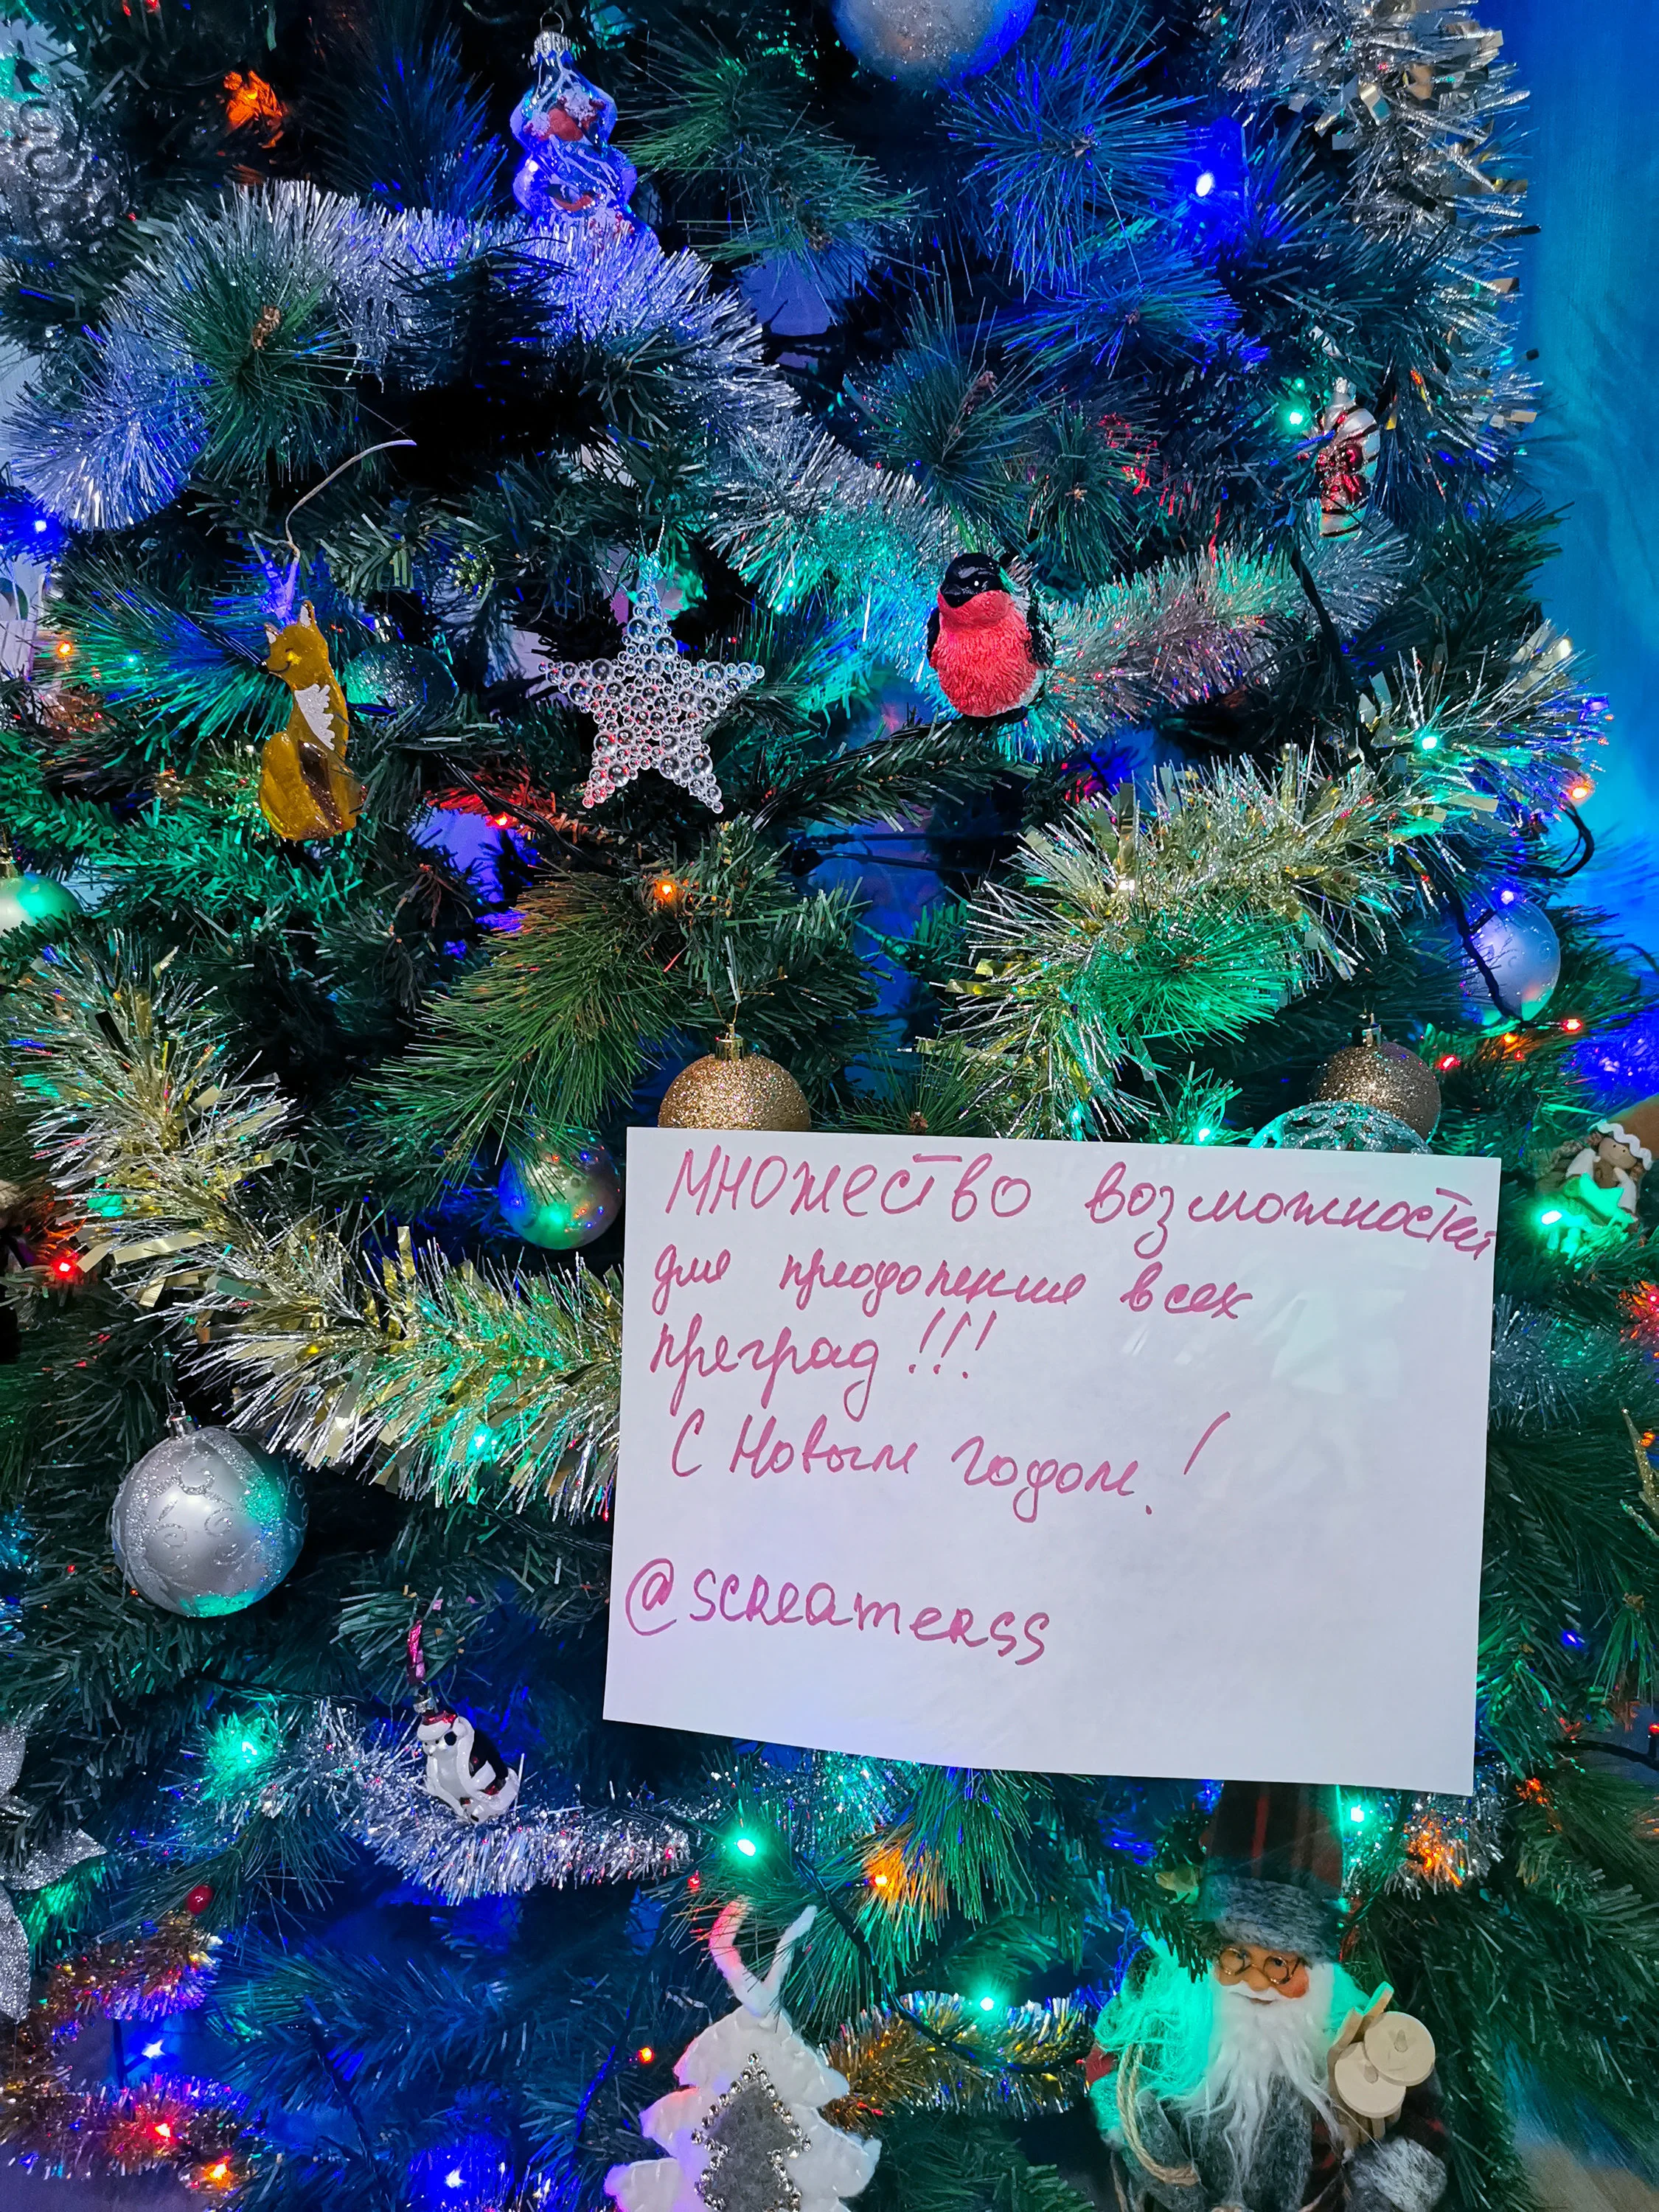 Множество возможностей
для преодоления всех
преград!!!
С Новым годом!
@screamerss